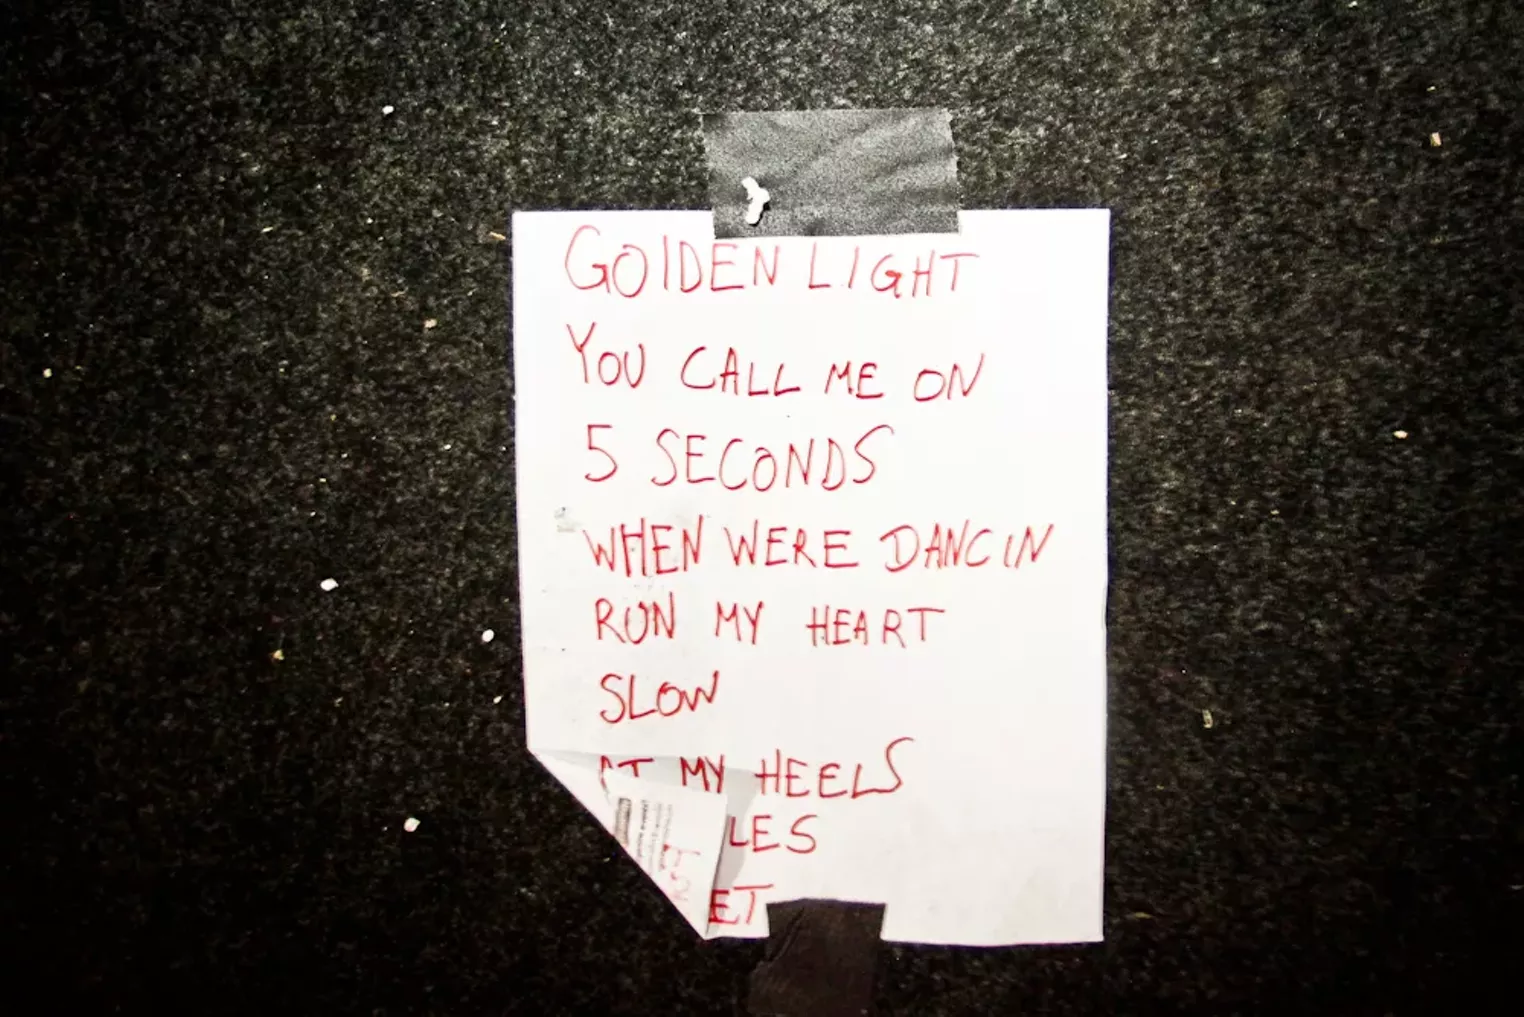 GOLDEN LIGHT
YOU CALL ME ON
5 SECONDS
WHEN WERE DANCIN
RUN MY HEART
SLOW
AT MY HEELS
LES
ET